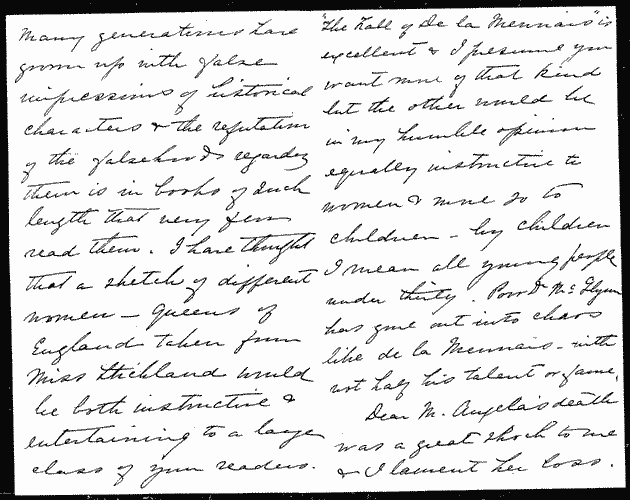 Many generations have
grown up with false
impressions of historical
characters & the refutation
of the falsehoods regarding
them is in books of such
length that very few
read them. I have thought
that a sketch of different
women – Queens of
England taken from
Miss Strickland would
be both instructive &
entertaining to a large
class of your readers.
"The Fall of De la Mennais" is
excellent & I presume you
want more of that kind
but the other would be
in my humble opinion
equally instructive to
women & more so to
children – by children
I mean all young people
under thirty. Poor Dr McGlynn
has gone out into chaos
like de la Mennais – with
not half his talent or fame.
Dear M. Angela's death
was a great shock to me
& I lament her loss.